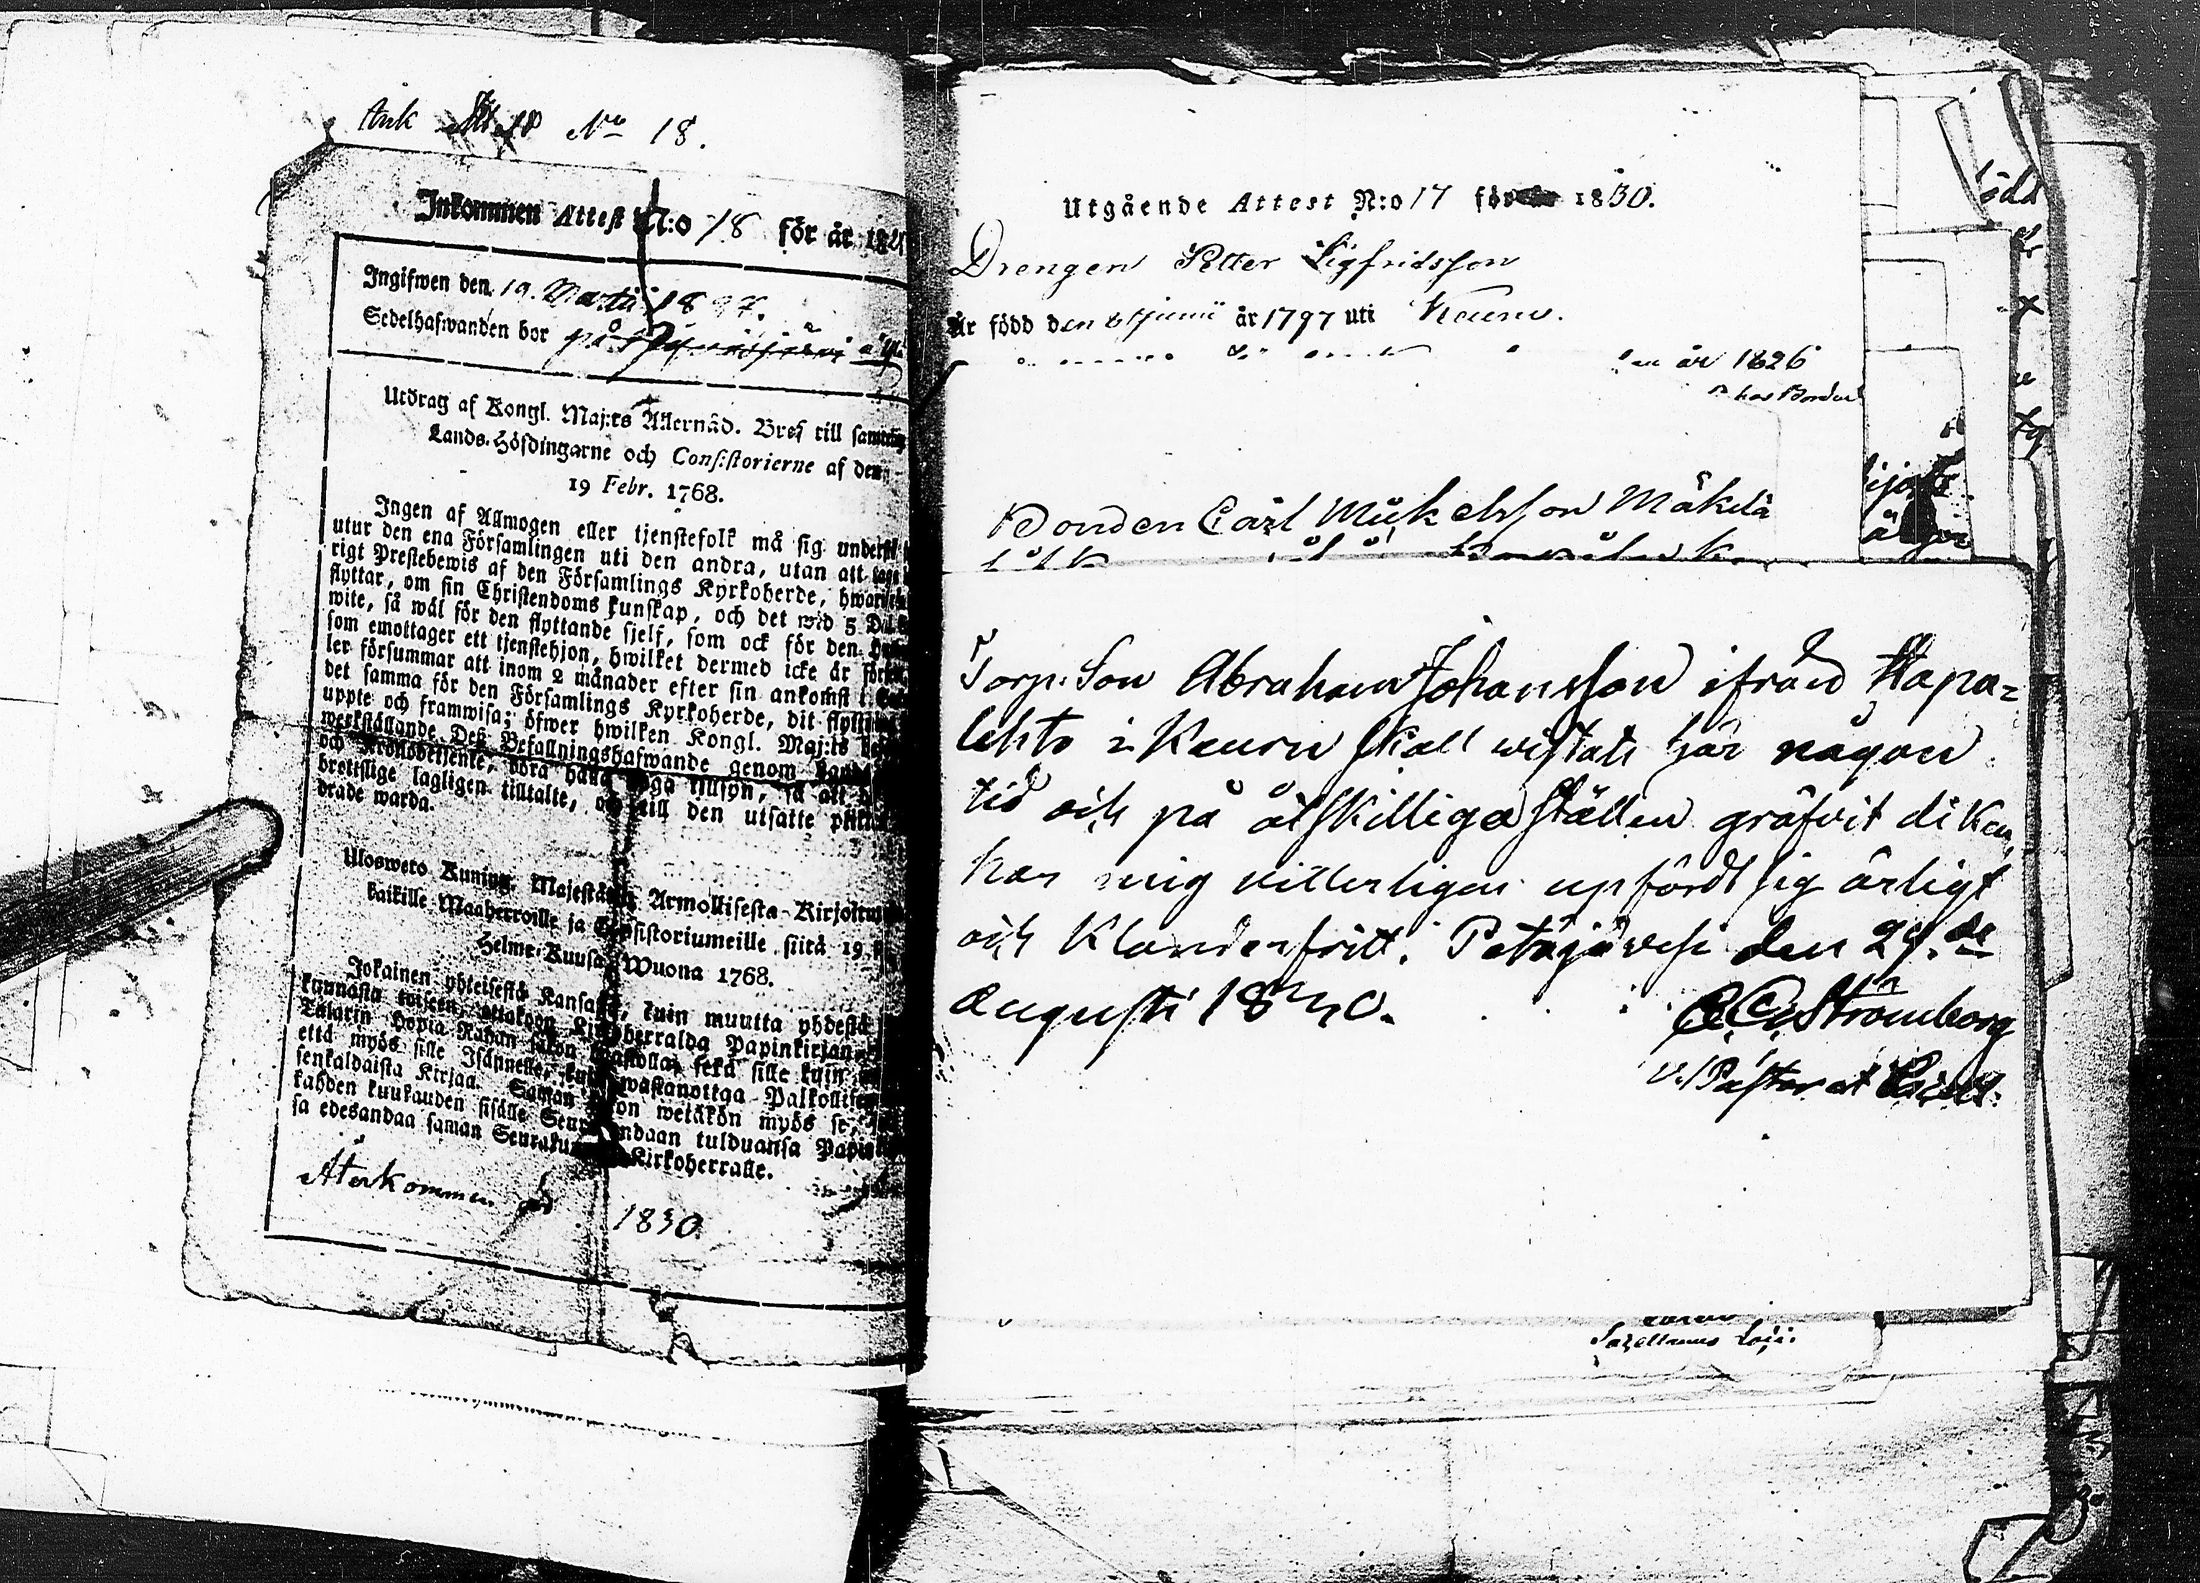 Ank Attest No 18.
Inkommen Attest N:o 18 för år 182
Ingifwen den 19. Martii 1827.
Sedelhafwanden bor på
Utdrag af Kongl. Maj:ts Allernåd. Bref till samtlig
Lands-Höfdingarne och Consistorierne af den
19 Febr. 1768.
Ingen af Allmogen eller tjenstefolk må sig understå
utur den ena Församlingen uti den andra, utan att
rigt Prestebewis af den Församlings Kyrkoherde, hwarifrå
flyttar, om sin Christendoms kunskap, och det wid 5 Dal.
wite, så wäl för den flyttande sjelf, som ock för den
som emottager ett tjenstehjon, hwilket dermed icke är förse
ler försummar att inom 2 månader efter sin ankomst i
det samma för den Församlings Kyrkoherde, dit flyttning
uppte och framwisa; öfwer hwilken Kongl. Maj:ts
werkställande Deß Befallningshafwande genom Land
och Kronobetjente, böra hafwa noga tillsyn, så att
brottslige lagligen tilltalte, och till den utsatte plikt
drade warda.
Ulosweto Kuning. Majestätin Armollisesta Kirjoitu
kaikille Maaherroille ja Consistoriumeille siitä 19
Helme-Kuusa Wuona 1768.
Jokainen yhteisestä Kansasta, kuin muutta yhdestä
kunnasta toiseen, ottakoon Kirkoherralda Papinkirjan
Talarin Hopia Rahan sakon haastolla, sekä sille kuin
että myös sille Isännelle, kuin wastanottaa Palkollisen
senkaldaista Kirjaa. Saman sakon wetäkön myös se,
kahden kuukauden sisälle Seurakundaan tulduansa Papin
sa edesandaa saman Seurakunnan Kirkoherralle.
Återkommen 1830.
Utgående Attest N:o 17 för år 1830.
Drengen Petter Sigfridsson
Är född den 6 Junii år 1797 uti Keuru.
år 1826
hos Bonden
Bonden Carl Mickelsson Mäkelä
Torp. Son Abraham Johansson ifrån Hapa-
lehto i Keuru skall wistats här någon
tid och på åtskilliga ställen gräfvit diken,
har mig vitterligen upfördt sig ärligt
och klanderfritt. Petäjävesi den 29.de
Augusti 1830.
Strömborg
v. Pastor
Sacellanus Loci.